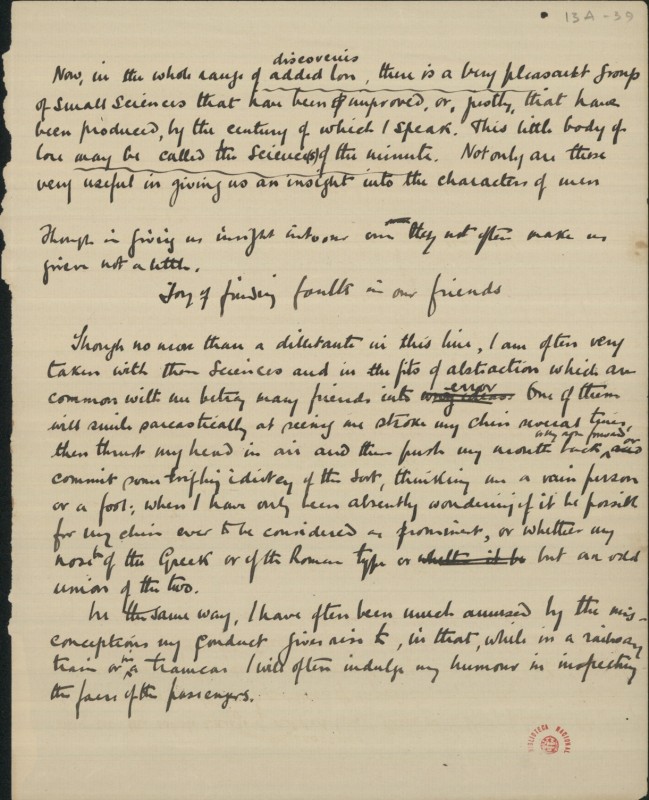 13A-39
discoveries
Now, in the whole range of added lore, there is a very pleasant group
of small sciences that have been improved, or, justly, that have
been produced, by the century of which I speak. This little body of
lore may be called the Science(s) of the minute. Not only are these
very useful in giving us an insight into the characters of men
Though in giving us insight into our own they not often make us
grieve not a little.
Joy of finding faults in our friends
Though no more than a dilettante in this line, I am often very
taken with these Sciences and in the fits of abstraction which are
common with me betray many friends into error One of them
will smile sarcastically at seeing me stroke my chin several times,
then thrust my head in air and then push my mouth back, or
commit some trifling idiotcy of the sort, thinking me a vain person
or a fool; when I have only been absently wondering if it be possible
for my chin ever to be considered as prominent, or whether my
nose be of the Greek or of the Roman type or but an odd
union of the two.
In the same way, I have often been much amused by the mis-
conceptions my conduct gives rise to, in that, while in a railway
train or in a tramcar I will often indulge my humour in inspecting
the faces of the passengers.
BIBLIOTECA NACIONAL